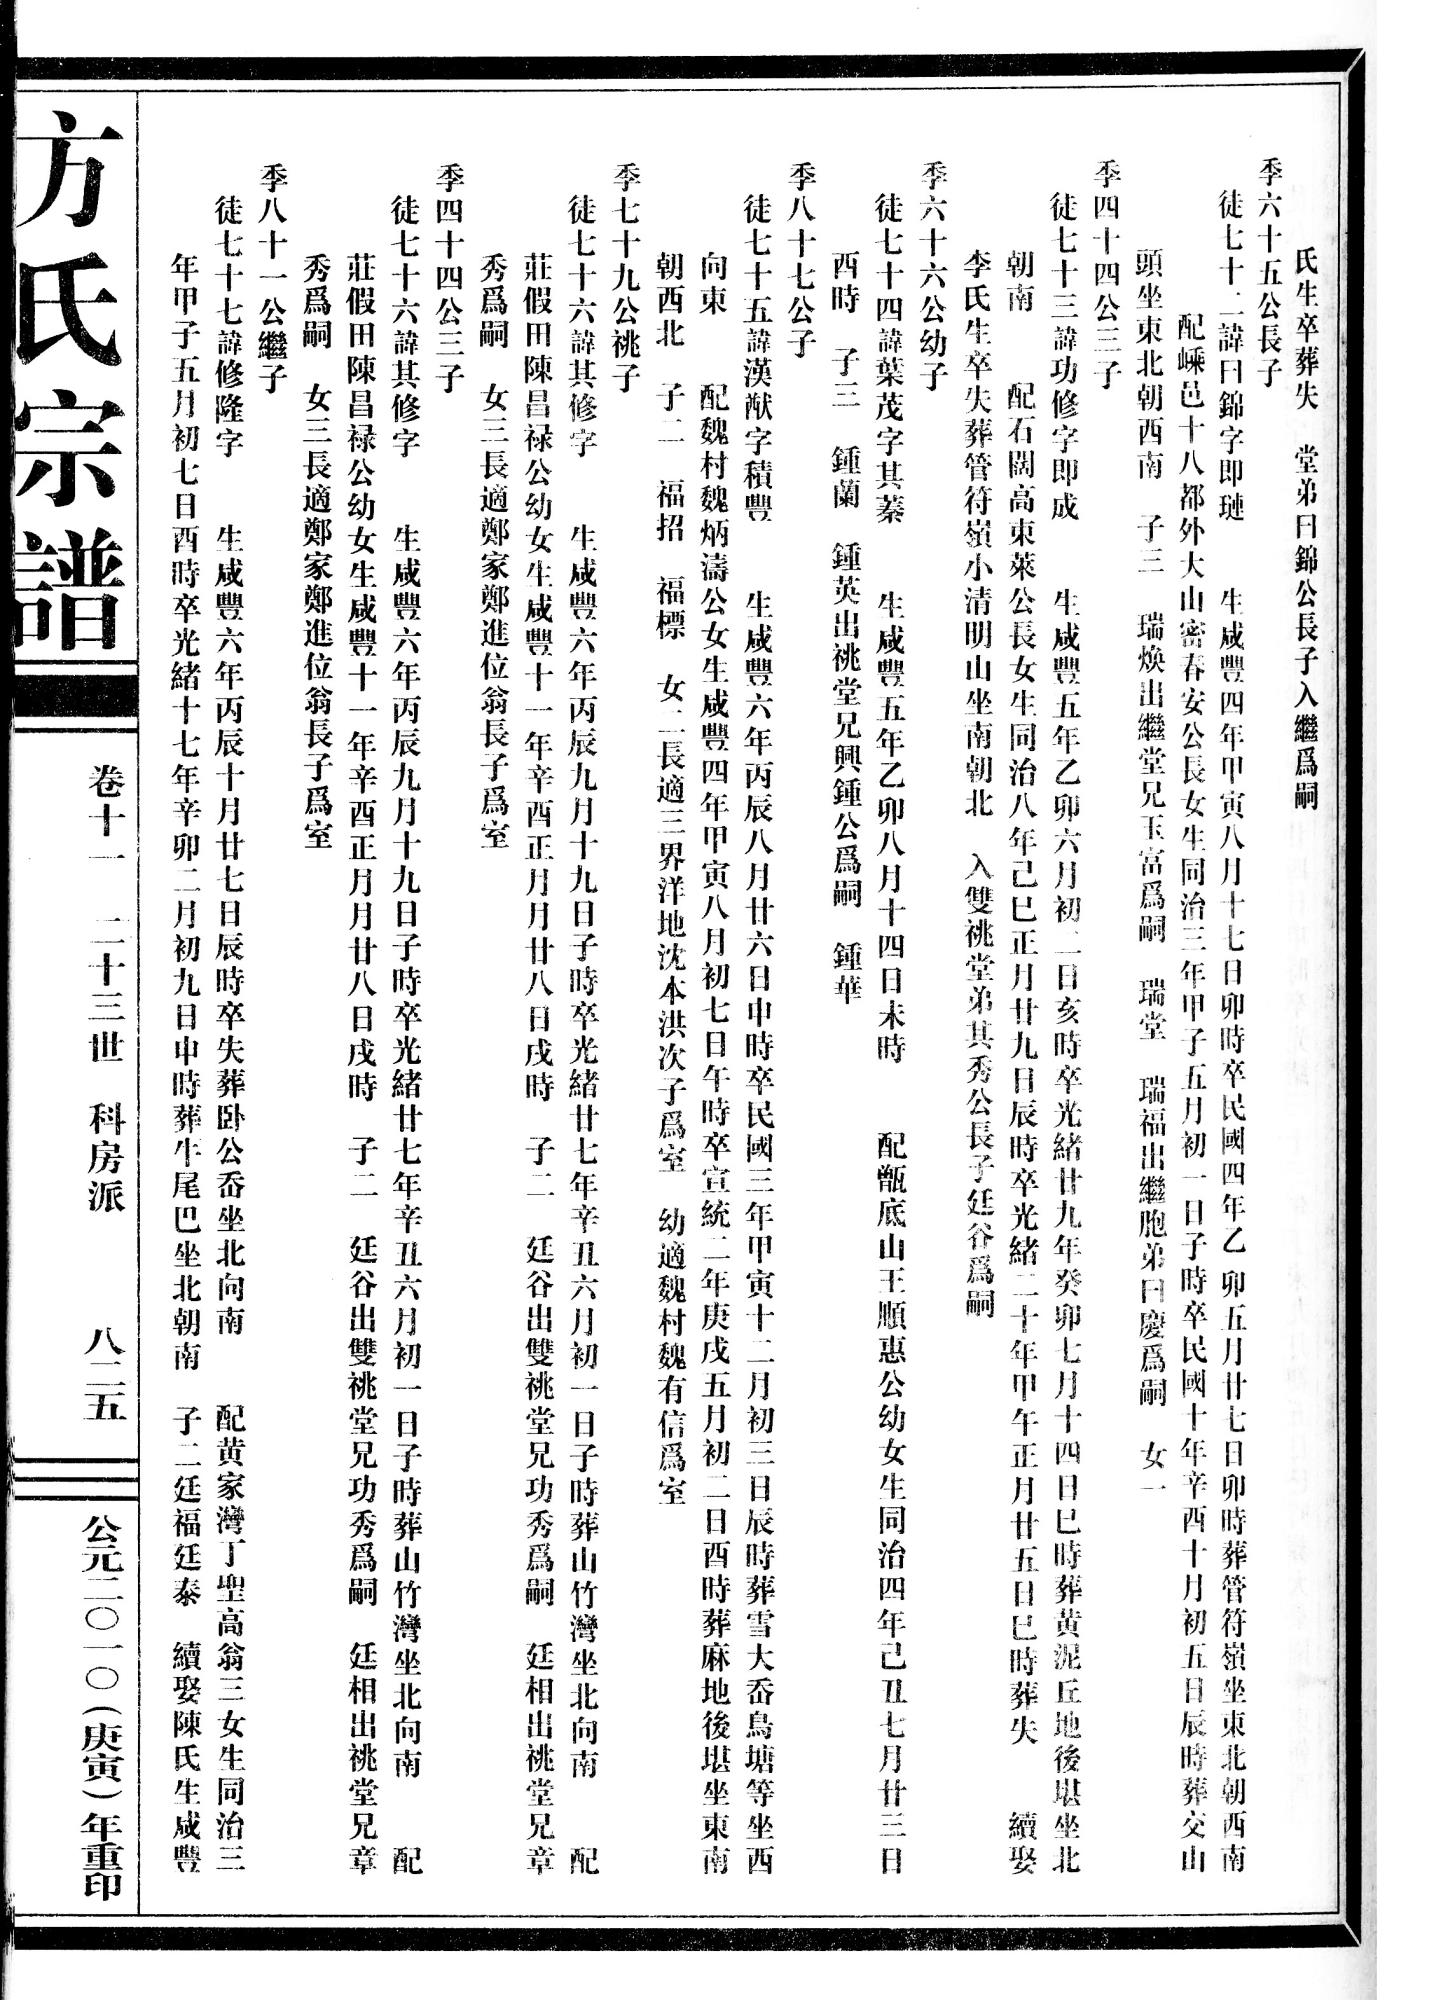 氏生卒葬失　堂弟曰錦公長子入繼爲嗣
季六十五公長子
徒七十二諱曰錦字即璉　生咸豐四年甲寅八月十七日卯時卒民國四年乙卯五月廿七日卯時葬管符嶺坐東北朝西南
配嵊邑十八都外大山密春安公長女生同治三年甲子五月初一日子時卒民國十年辛酉十月初五日辰時葬交山
頭坐東北朝西南　子三　瑞煥出繼堂兄玉富爲嗣　瑞堂　瑞福出繼胞弟曰慶爲嗣　女一
季四十四公三子
徒七十三諱功修字即成　生咸豐五年乙卯六月初二日亥時卒光緒廿九年癸卯七月十四日巳時葬黄泥丘地後堪坐北
朝南　配石闊高東萊公長女生同治八年己巳正月廿九日辰時卒光緒二十年甲午正月廿五日巳時葬失　續娶
李氏生卒失葬管符嶺小清明山坐南朝北　入雙祧堂弟其秀公長子廷谷爲嗣
季六十六公幼子
徒七十四諱葉茂字其蓁　生咸豐五年乙卯八月十四日未時　配甑底山王順惠公幼女生同治四年己丑七月廿三日
酉時　子三　鍾蘭　鍾英出祧堂兄興鍾公爲嗣　鍾華
季八十七公子
徒七十五諱漢猷字積豐　生咸豐六年丙辰八月廿六日申時卒民國三年甲寅十二月初三日辰時葬雪大岙鳥塘等坐西
向東　配魏村魏炳濤公女生咸豐四年甲寅八月初七日午時卒宣統二年庚戌五月初二日酉時葬麻地後堪坐東南
朝西北　子二　福招　福標　女二長適三界洋地沈本洪次子爲室　幼適魏村魏有信爲室
季七十九公祧子
徒七十六諱其修字　生咸豐六年丙辰九月十九日子時卒光緒廿七年辛丑六月初一日子時葬山竹灣坐北向南　配
莊假田陳昌禄公幼女生咸豐十一年辛酉正月廿八日戌時　子二　廷谷出雙祧堂兄功秀爲嗣　廷相出祧堂兄章
秀爲嗣　女三長適鄭家鄭進位翁長子爲室
季四十四公三子
徒七十六諱其修字　生咸豐六年丙辰九月十九日子時卒光緒廿七年辛丑六月初一日子時葬山竹灣坐北向南　配
莊假田陳昌禄公幼女生咸豐十一年辛酉正月廿八日戌時　子二　廷谷出雙祧堂兄功秀爲嗣　廷相出祧堂兄章
秀爲嗣　女三長適鄭家鄭進位翁長子爲室
季八十一公繼子
徒七十七諱修隆字　生咸豐六年丙辰十月廿七日辰時卒失葬卧公岙坐北向南　配黄家灣丁聖高翁三女生同治三
年甲子五月初七日酉時卒光緒十七年辛卯二月初九日申時葬牛尾巴坐北朝南　子二廷福廷泰　續娶陳氏生咸豐
方氏宗譜
卷十一　二十三世　科房派　八二五
公元二〇一〇(庚寅)年重印